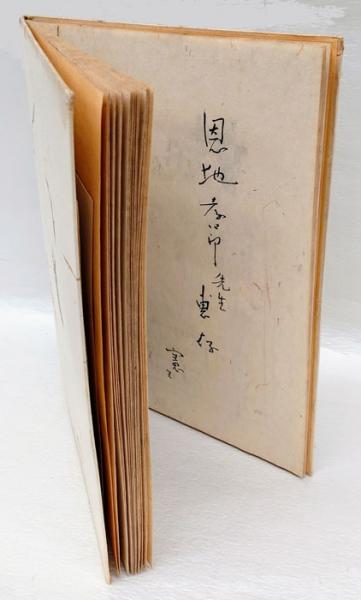 恩地孝四郎先生惠存